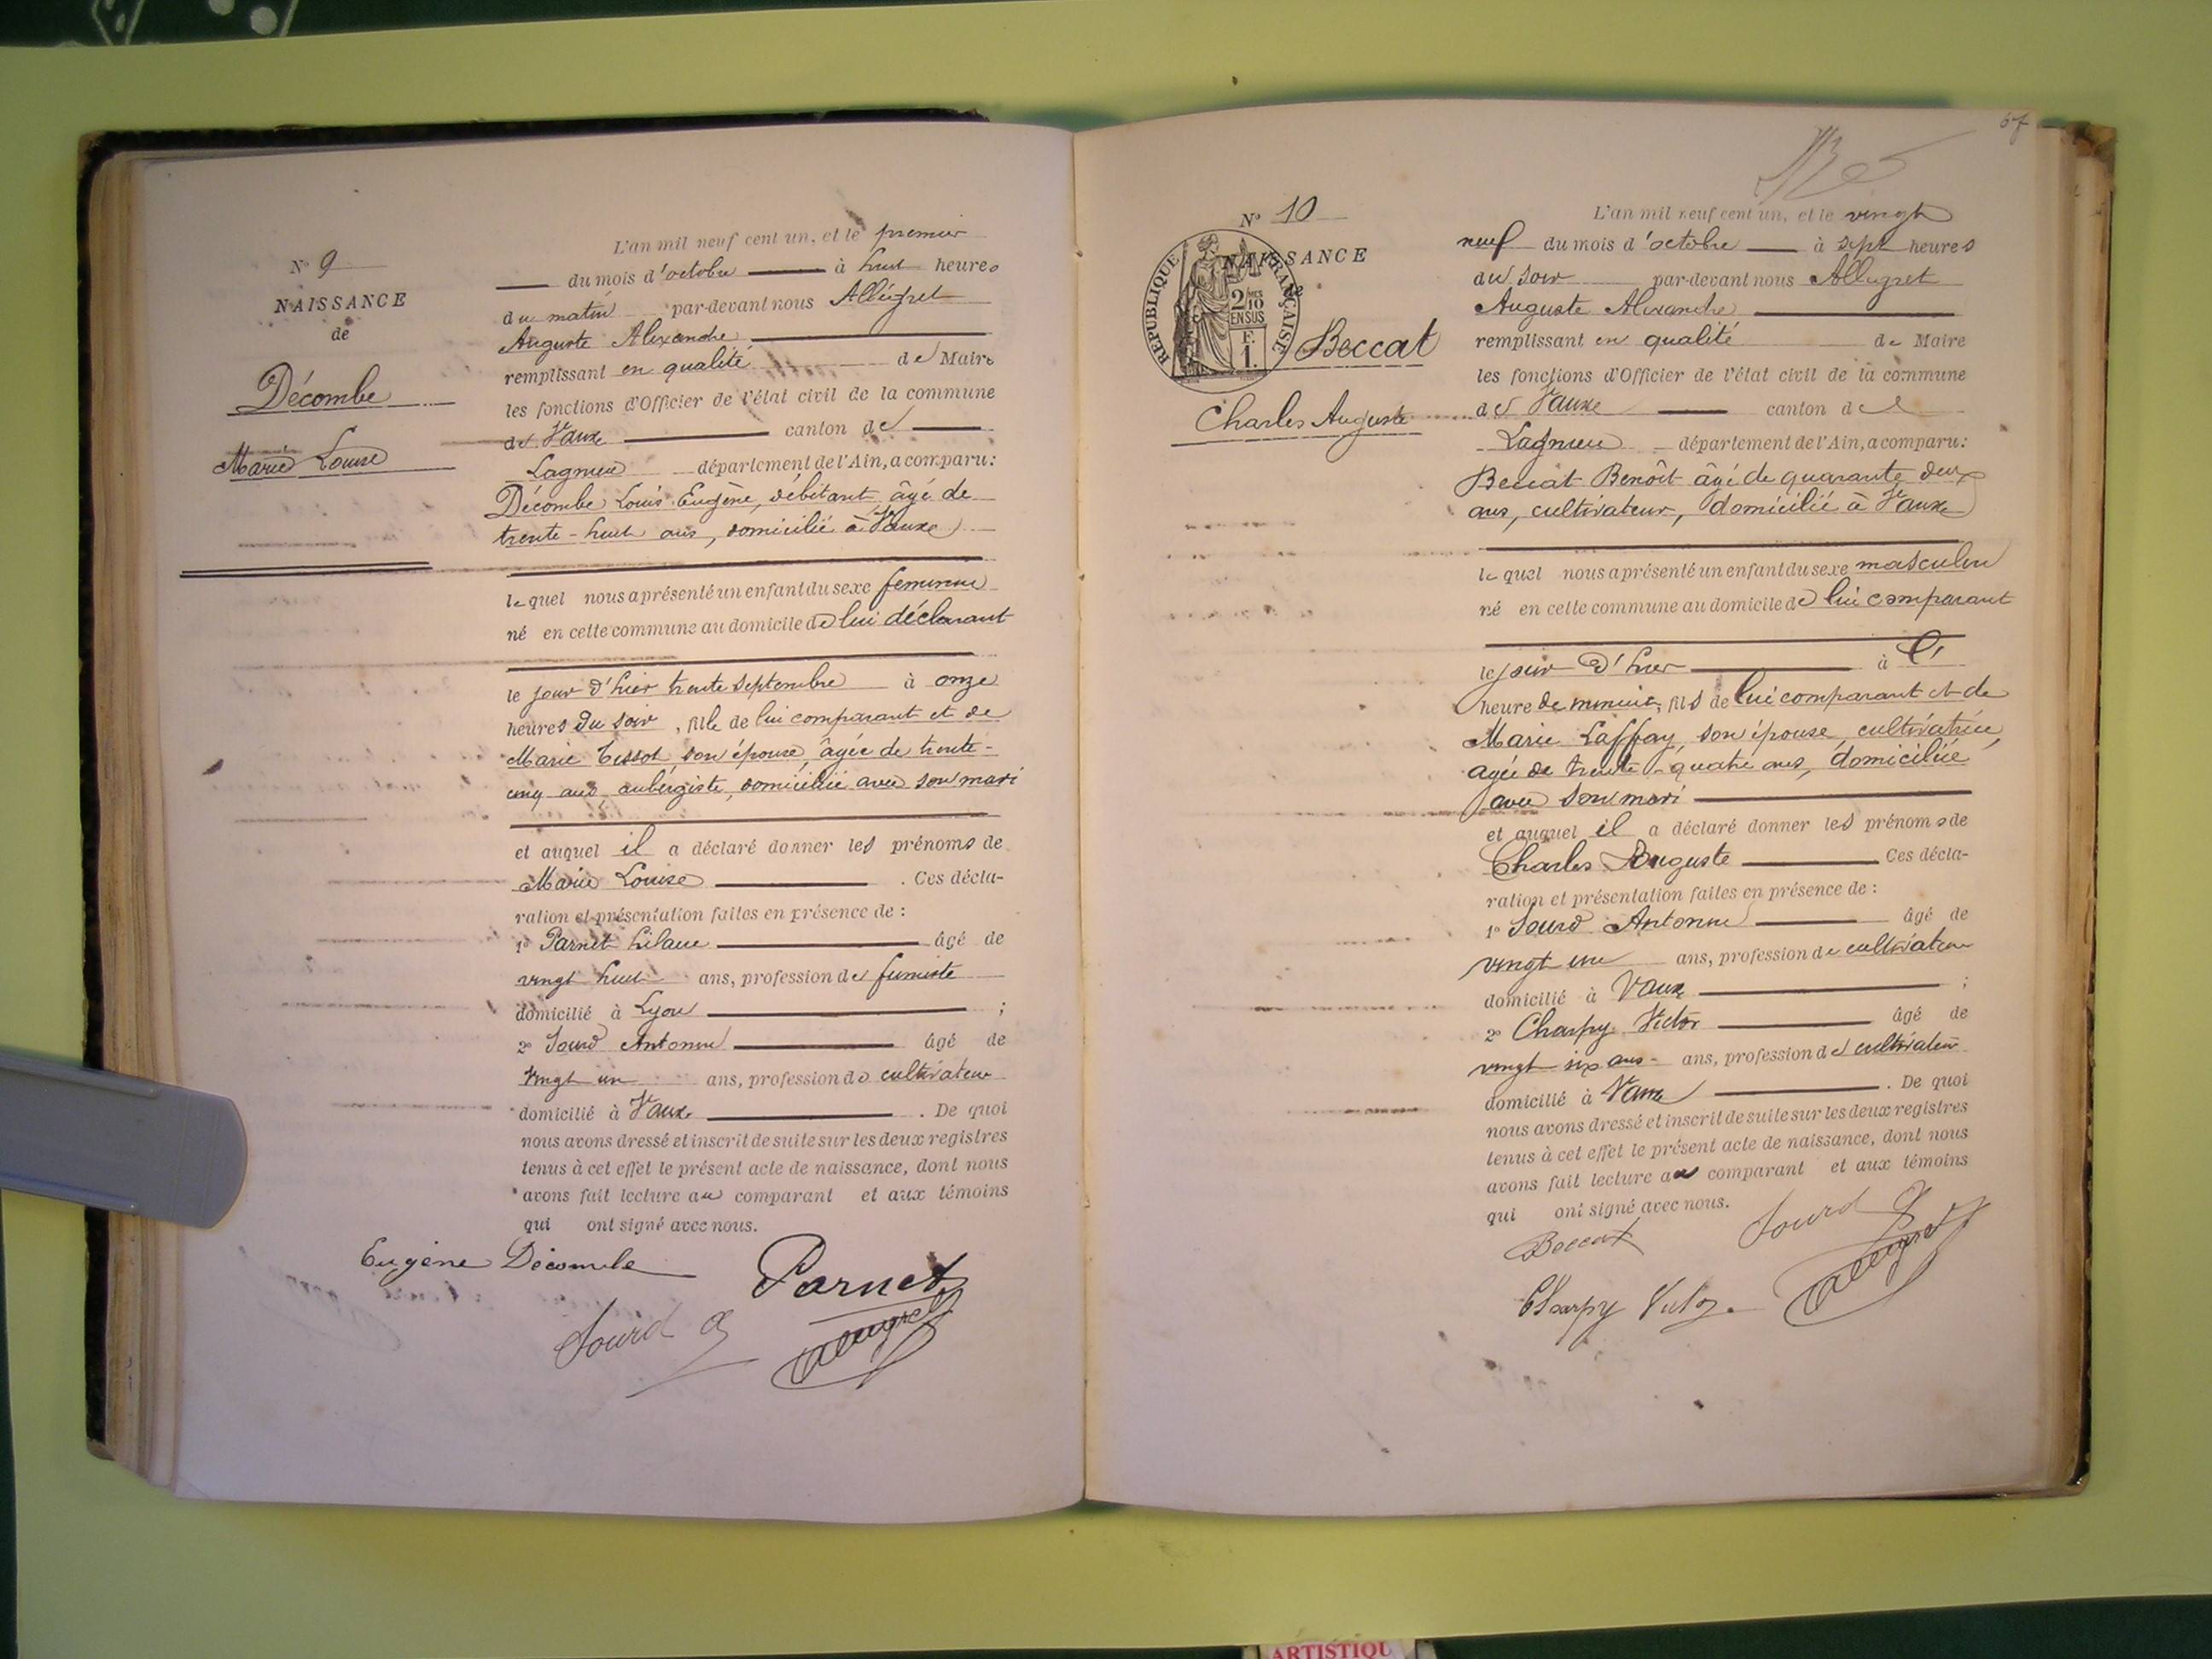 N° 9
NAISSANCE
de
Décombe
Marie Louise
L'an mil neuf cent un, et le premier
du mois d'octobre à huit heures
du matin par-devant nous Allégret
Auguste Alexandre
remplissant en qualité de Maire
les fonctions d'Officier de l'état civil de la commune
de Vaux canton de
Lagnieu département de l'Ain, a comparu:
Décombe Louis Eugène, débitant âgé de
trente-huit ans, domicilié à Vaux
lequel nous a présenté un enfant du sexe féminin
né en cette commune au domicile de lui déclarant
le jour d'hier trente septembre à onze
heures du soir, fille de lui comparant et de
Marie Tissot, son épouse, âgée de trente-
cinq ans, aubergiste, domiciliée avec son mari
et auquel il a déclaré donner les prénoms de
Marie Louise . Ces décla-
ration et présentation faites en présence de :
1° Parnet Hilaire âgé de
vingt huit ans, profession de fumiste
domicilié à Lyon ;
2° Sourd Antoine âgé de
vingt un ans, profession de cultivateur
domicilié à Vaux . De quoi
nous avons dressé et inscrit de suite sur les deux registres
tenus à cet effet le présent acte de naissance, dont nous
avons fait lecture au comparant et aux témoins
qui ont signé avec nous.
Eugène Décombe
Parnet
Sourd A
Allegret
67
N° 10
NAISSANCE
de
RÉPUBLIQUE FRANÇAISE
2/10 MES
EN SUS
F.
1.
Beccat
Charles Auguste
L'an mil neuf cent un, et le vingt
neuf du mois d'octobre à sept heures
du soir par-devant nous Allegret
Auguste Alexandre
remplissant en qualité de Maire
les fonctions d'Officier de l'état civil de la commune
de Vaux canton de
Lagnieu département de l'Ain, a comparu:
Beccat Benoît âgé de quarante deux
ans, cultivateur, domicilié à Vaux
lequel nous a présenté un enfant du sexe masculin
né en cette commune au domicile de lui comparant
le jour d'hier à
heure de minuit, fils de lui comparant et de
Marie Laffay, son épouse, cultivatrice,
âgée de trente-quatre ans, domiciliée
avec son mari
et auquel il a déclaré donner les prénoms de
Charles Auguste Ces décla-
ration et présentation faites en présence de :
1° Sourd Antoine âgé de
vingt un ans, profession de cultivateur
domicilié à Vaux ;
2° Charpy Victor âgé de
vingt six ans - ans, profession de cultivateur
domicilié à Vaux . De quoi
nous avons dressé et inscrit de suite sur les deux registres
tenus à cet effet le présent acte de naissance, dont nous
avons fait lecture au comparant et aux témoins
qui ont signé avec nous.
Beccat
Sourd A
Charpy Victor
Allegret
ARTISTIQU